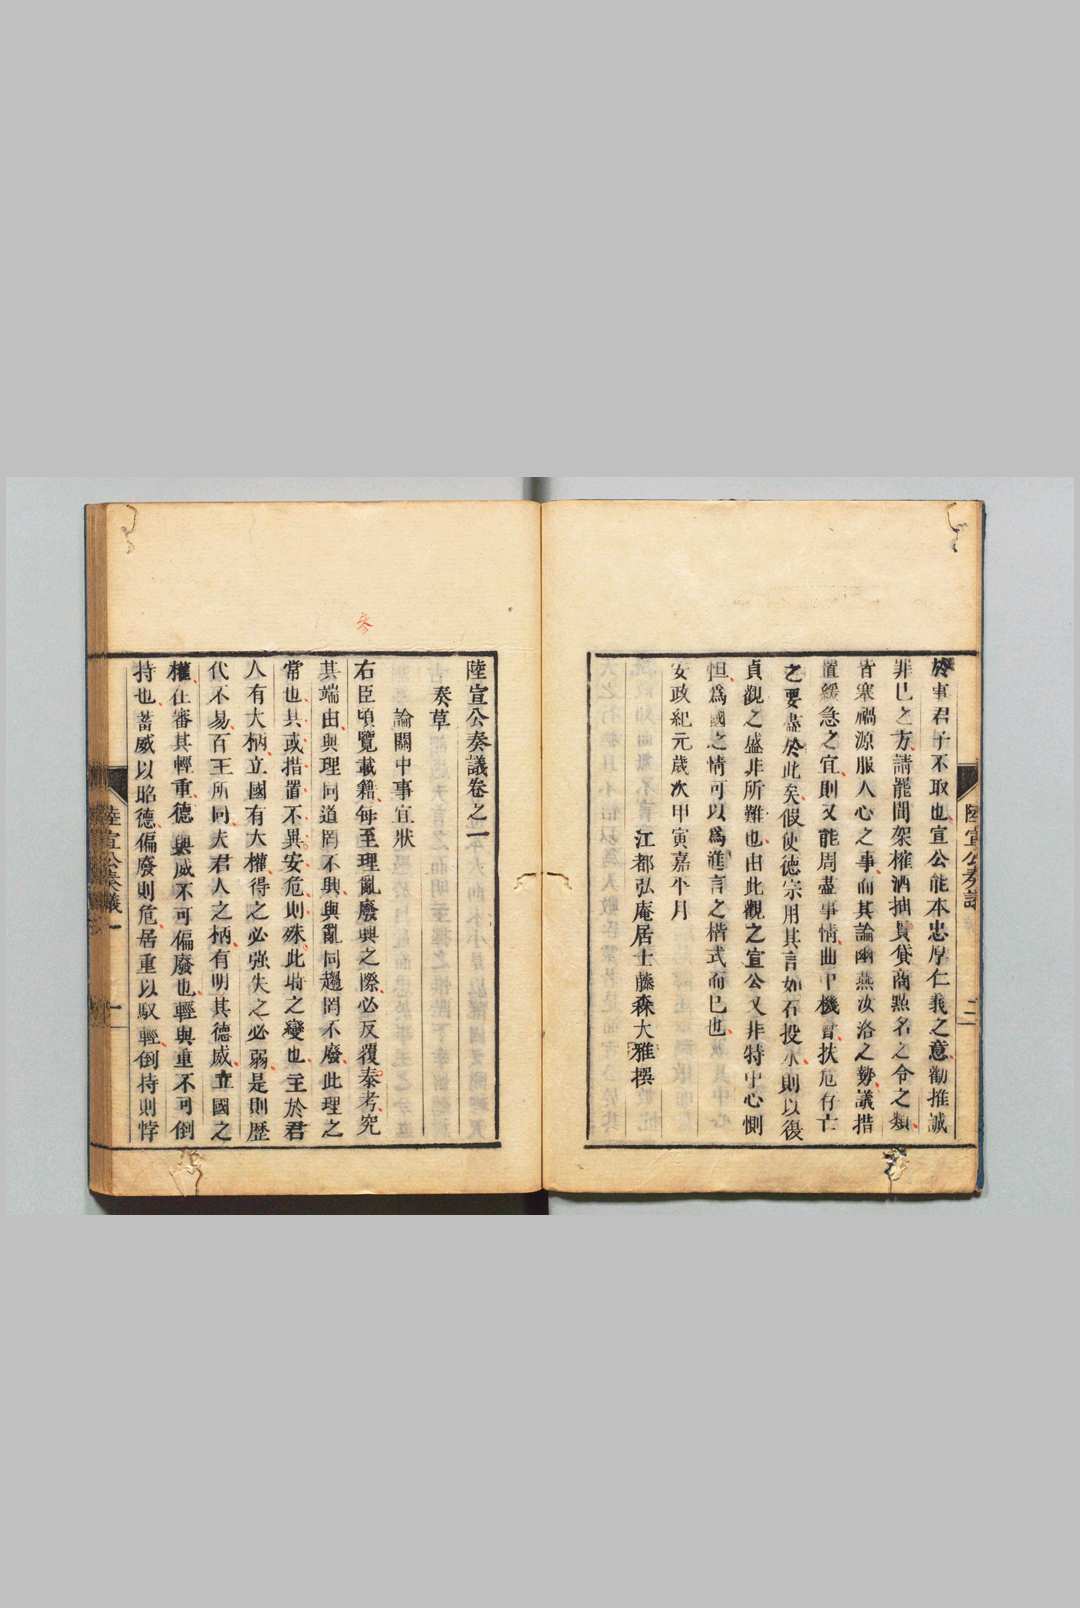 於事君子不取也宣公能本忠厚仁義之意勸推誠
罪已之方請罷間架榷酒抽貫貸商點名之令之類
皆塞禍源服人心之事而其論幽燕汝洛之勢議措
置緩急之宜則又能周盡事情曲中機會扶危存亡
之要盡於此矣假使德宗用其言如石投水則以復
貞觀之盛非所難也由此觀之宣公又非特中心惻
怛爲國之情可以爲進言之楷式而已也
安政紀元歲次甲寅嘉平月
江都弘庵居士藤森大雅撰
陸宣公奏議
二
陸宣公奏議卷之一
奏草
論關中事宜狀
右臣頃覽載籍每至理亂廢興之際必反覆參考究
其端由與理同道罔不興與亂同趣罔不廢此理之
常也其或措置不異安危則殊此時之變也至於君
人有大柄立國有大權得之必強失之必弱是則歷
代不易百王所同夫君人之柄有明其德威立國之
權在審其輕重德與威不可偏廢也輕與重不可倒
持也蓄威以昭德偏廢則危居重以馭輕倒持則悖
陸宣公奏議
一
參